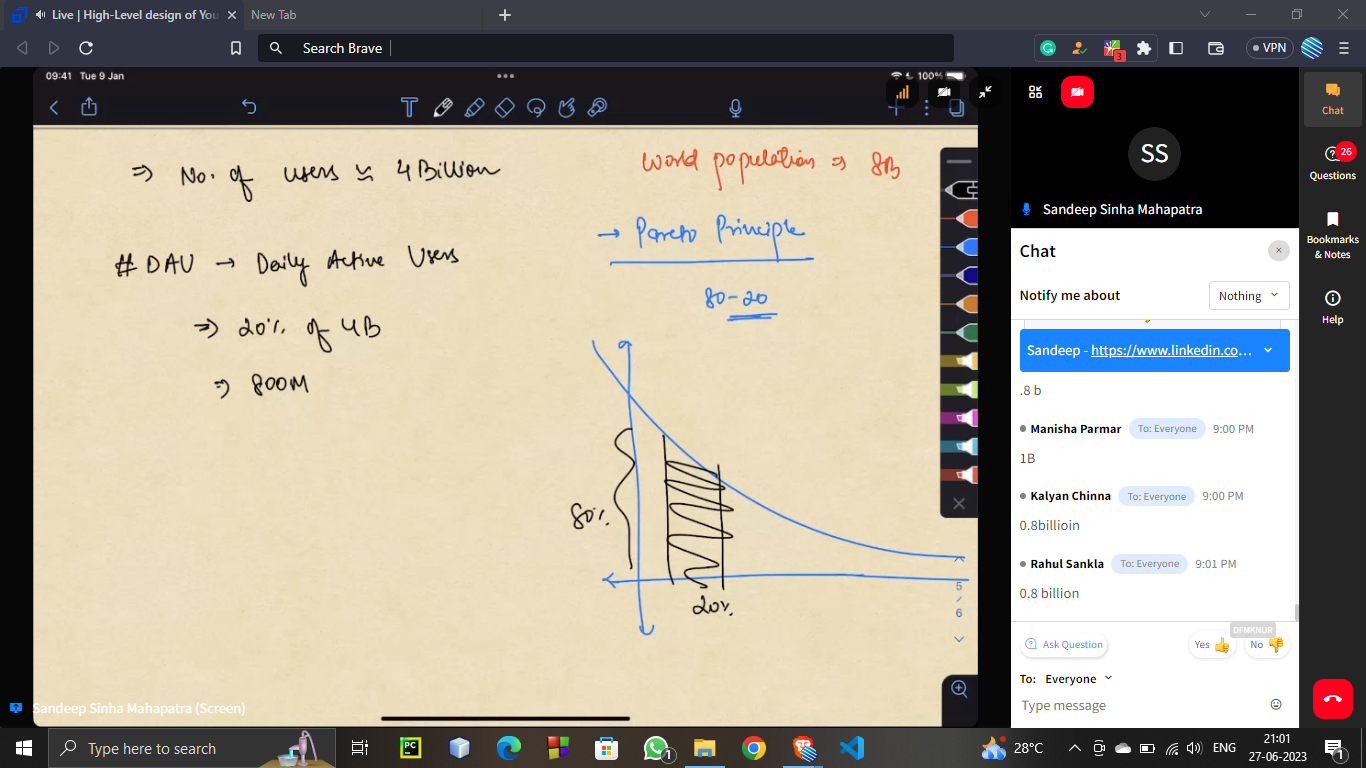 Live | High-Level design of You
New Tab
Search Brave
3
VPN
09:41 Tue 9 Jan
100%
⇒ No. of users ≃ 4 Billion
World population ⇒ 8B
→ Pareto Principle
80-20
# DAU → Daily Active Users
⇒ 20% of 4B
⇒ 800M
80%
20%
5
/
6
Sandeep Sinha Mahapatra (Screen)
SS
Sandeep Sinha Mahapatra
Chat
Notify me about
Nothing
Sandeep - https://www.linkedin.co...
.8 b
Manisha Parmar To: Everyone 9:00 PM
1B
Kalyan Chinna To: Everyone 9:00 PM
0.8billioin
Rahul Sankla To: Everyone 9:01 PM
0.8 billion
DFMKNUR
Ask Question
Yes 👍
No 👎
To: Everyone
Type message
Chat
26
Questions
Bookmarks
& Notes
Help
Type here to search
PC
1
28°C
ENG
21:01
27-06-2023
1